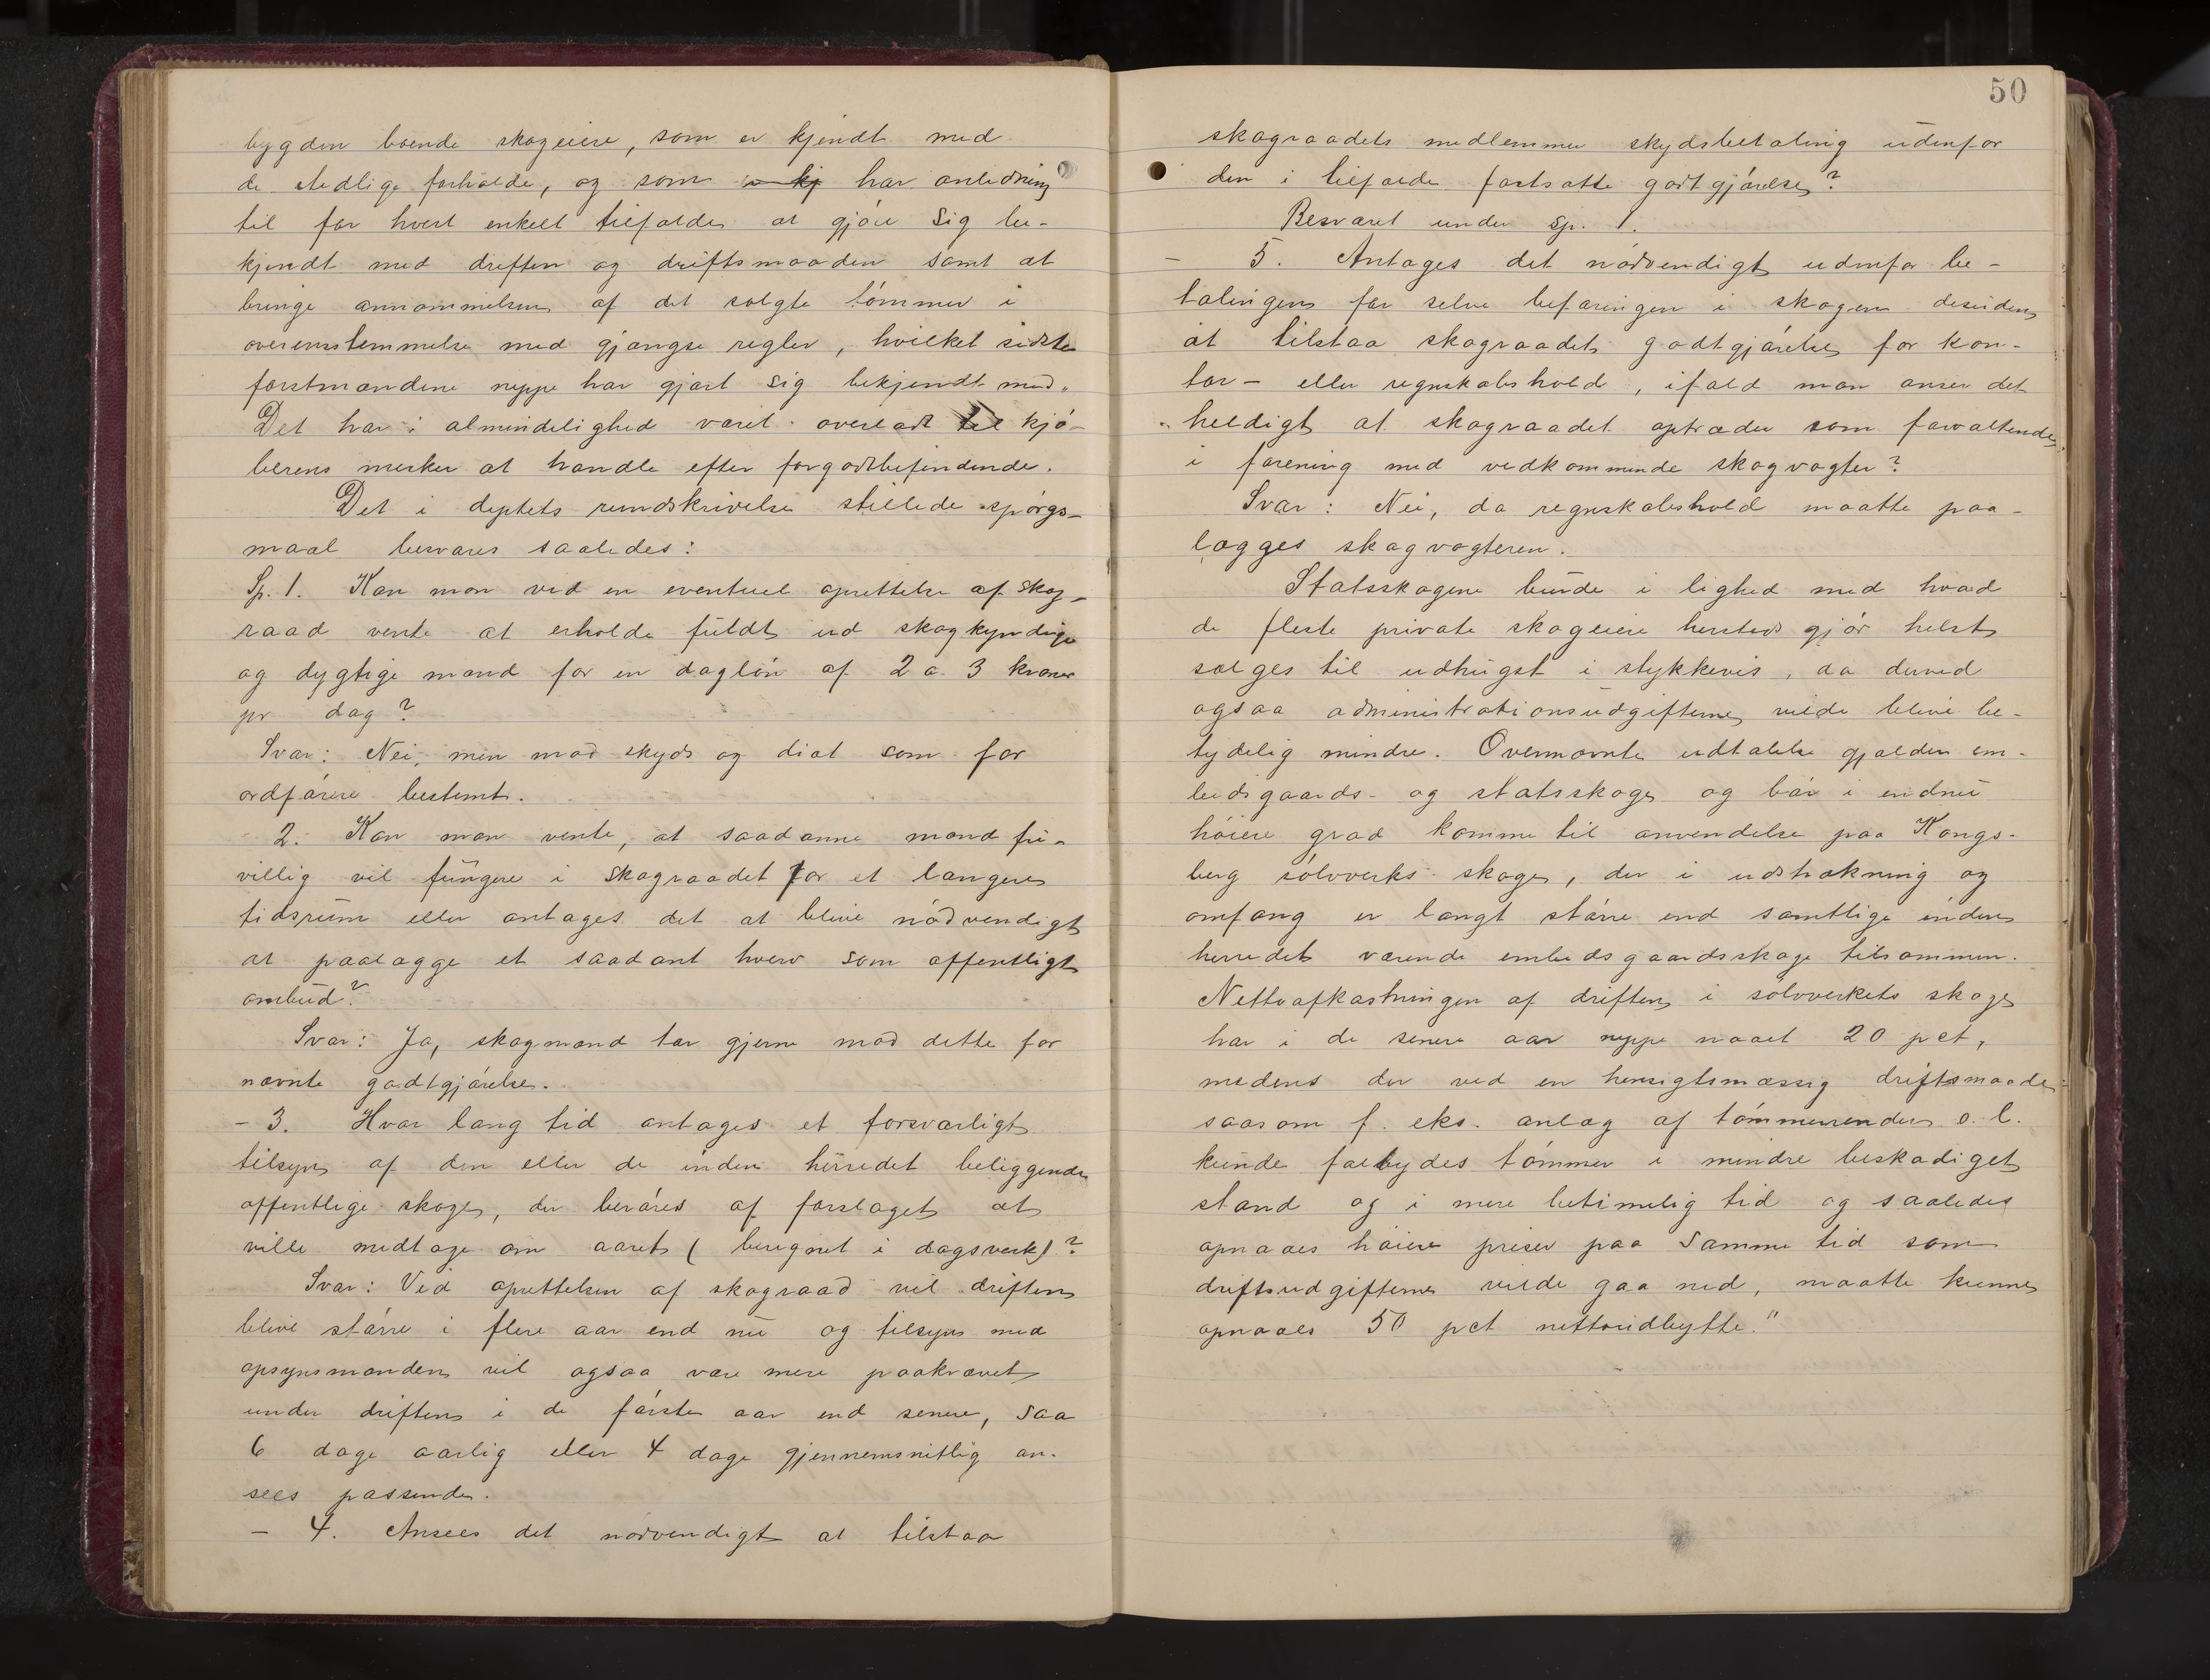 bygden boende skogeiere, som er kjendt med
de stedlige forholde, og som er kj har anledning
til for hvert enkelt tilfælde at gjøre sig be-
kjendt med driften og driftsmaaden samt at
bringe annammelsen af det solgte tømmer i
overensstemmelse med gjængse regler, hvilket sidste
forstmændene neppe har gjort sig bekjendt med.
Det har i almindelighed været overladt til kjø-
berens merker at handle efter forgodtbefindende.
Det i deptets rundskrivelse stillede spørgs-
maal besvares saaledes:
Sp. 1. Kan man ved en eventuel oprettelse af skog-
raad vente at erholde fuldt ud skogkyndige
og dygtige mænd for en dagløn af 2 a 3 kroner
pr dag?
Svar: Nei, men mod skyds og diæt som for
ordførere bestemt.
- 2. Kan man vente, at saadanne mænd fri-
villig vil fungere i skograadet for et længere
tidsrum eller antages det at blive nødvendigt
at paalægge et saadant hverv som offentligt
ombud?
Svar: Ja, skogmænd tar gjerne mod dette for
nævnte godtgjørelse.
- 3. Hvor lang tid antages et forsvarligt
tilsyn af den eller de inden herredet beliggende
offentlige skoge, der berøres af forslaget at
ville medtage om aaret (beregnet i dagsverk)?
Svar: Ved oprettelsen af skograad vil driften
blive større i flere aar end nu og tilsyn med
opsynsmanden vil ogsaa være mere paakrævet
under driften i de første aar end senere, saa
6 dage aarlig eller 4 dage gjennemsnitlig an-
sees passende.
- 4. Ansees det nødvendigt at tilstaa
50
skograadets medlemmer skydsbetaling udenfor
den i tilfælde fastsatte godtgjørelse?
Besvaret under sp. 1.
- 5. Antages det nødvendigt udenfor be-
talingen for selve befaringen i skogen desuden
at tilstaa skograadet godtgjørelse for kon-
tor- eller regnskabshold, ifald man anser det
heldigt at skograadet optræder som forvaltende
i forening med vedkommende skogvogter?
Svar: Nei, da regnskabshold maatte paa-
lægges skogvogteren.
Statsskogene burde i lighed med hvad
de fleste private skogeiere hersteds gjør helst
sælges til udhugst i stykkevis, da derved
ogsaa administrationsudgifterne vilde blive be-
tydelig mindre. Ovennævnte udtalelse gjælder em-
bedsgaards- og statsskoge og bør i endnu
høiere grad komme til anvendelse paa Kongs-
berg sølvverks skoge, der i udstrækning og
omfang er langt større end samtlige inden
herredet værende embedsgaardsskoge tilsammen.
Nettoafkastningen af driften i sølvverkets skoge
har i de senere aar neppe naaet 20 pct,
medens der ved en hensigtsmæssig driftsmaade
saasom f. eks. anlæg af tømmerrender o. l.
kunde falbydes tømmer i mindre beskadiget
stand og i mere betimelig tid og saaledes
opnaaes høiere priser paa samme tid som
driftsudgifterne vilde gaa ned, maatte kunne
opnaaes 50 pct nettoudbytte."